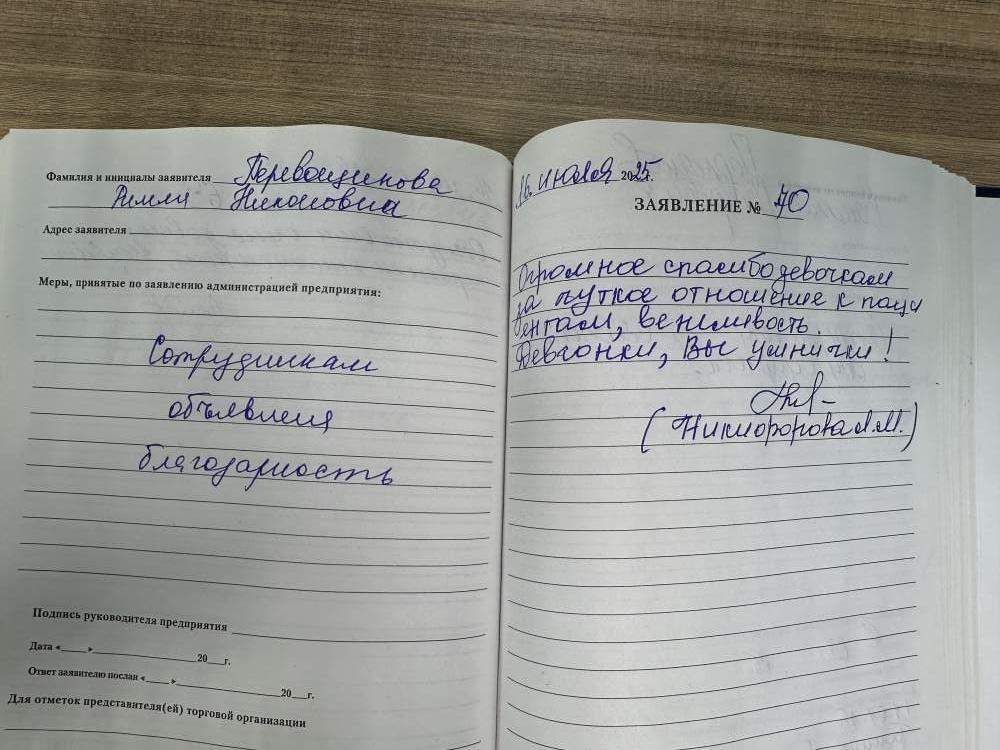 Фамилия и инициалы заявителя Перевощикова
Римма Николовна
Адрес заявителя
Меры, принятые по заявлению администрацией предприятия:
Сотрудникам
объявлена
благодарность
Подпись руководителя предприятия
Дата «___» ___ 20___г.
Ответ заявителю послан «___» ___ 20___г.
Для отметок представителя(ей) торговой организации
16. июля 2025г.
ЗАЯВЛЕНИЕ № 70
Огромное спасибо девочкам
за чуткое отношение к паци
ентам, вежливость.
Девчонки, Вы умнички!
(Никифорова А.М.)